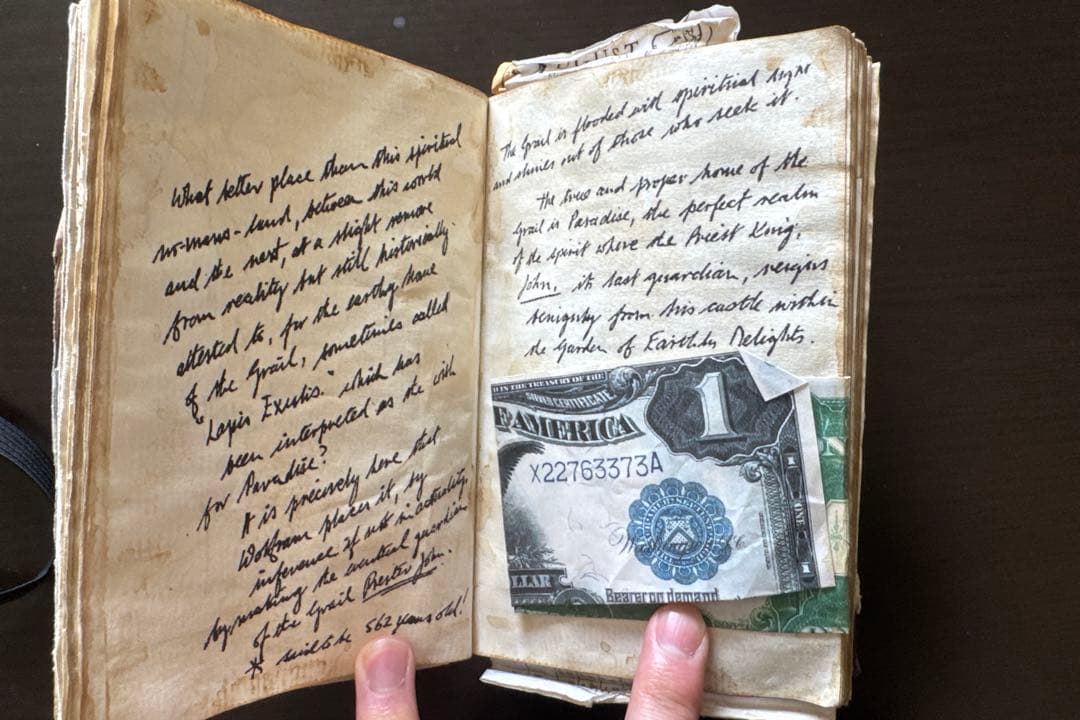 What better place than this spiritual
no-mans-land, between this world
and the next, at a slight remove
from reality but still historically
attested to, for the earthy have
of the Grail, sometimes called
"Lapis Exultis." which has
been interpreted as the wish
for Paradise?
It is precisely here that
Wolfram places it, by
inference if not in actuality,
by making the eventual guardian
of the Grail Prester John.
* said to be 562 years old!
The Grail is flooded with spiritual
and shines out of those who seek it.
The true and proper home of the
Grail is Paradise, the perfect realm
of the spirit where the Priest King,
John, its last guardian, reigns
benignly from his castle within
the Garden of Earthly Delights.
IN THE TREASURY OF THE
SILVER CERTIFICATE
F AMERICA
1
X22763373A
LLAR
Bearer on demand
ONE